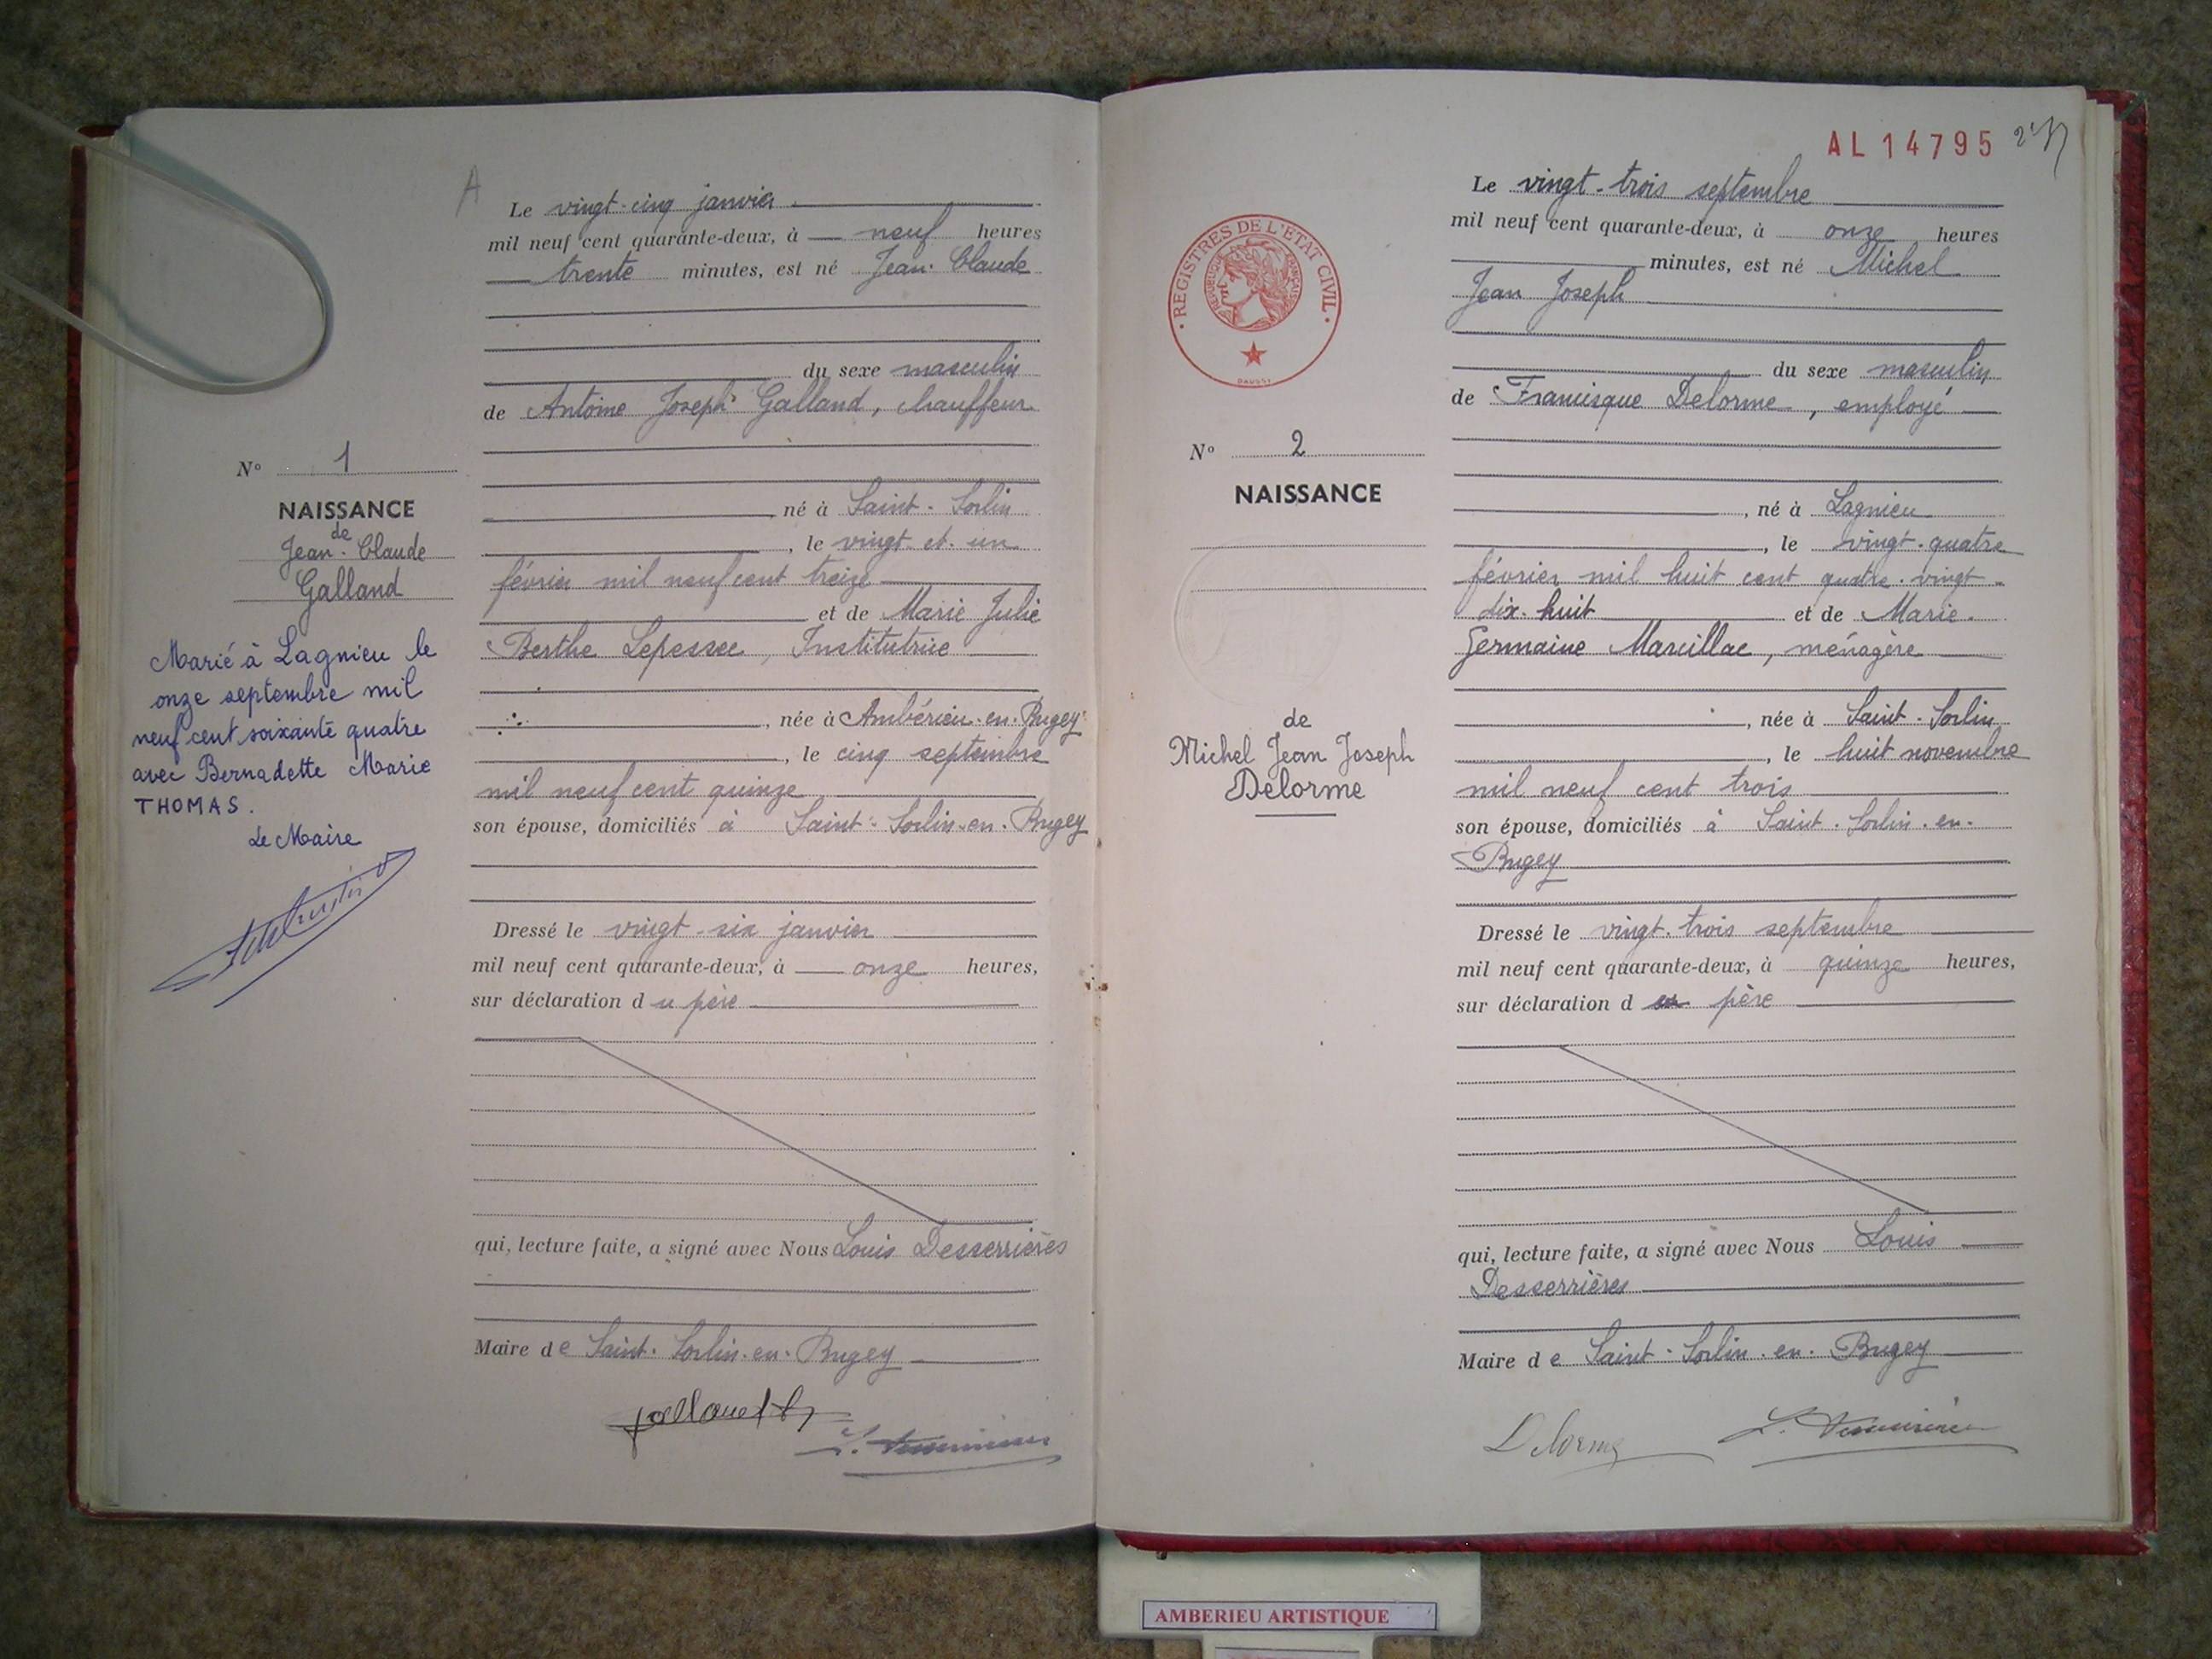 A
Le vingt-cinq janvier
mil neuf cent quarante-deux, à neuf heures
trente minutes, est né Jean-Claude
du sexe masculin
de Antoine Joseph Galland, chauffeur
né à Saint-Sorlin
, le vingt et un
février mil neuf cent treize
et de Marie Julie
Berthe Lepessec, Institutrice
, née à Ambérieu-en-Bugey
, le cinq septembre
mil neuf cent quinze
son épouse, domiciliés à Saint-Sorlin-en-Bugey
Dressé le vingt-six janvier
mil neuf cent quarante-deux, à onze heures,
sur déclaration du père
qui, lecture faite, a signé avec Nous Louis Desserrières
Maire de Saint-Sorlin-en-Bugey
N° 1
NAISSANCE
de
Jean-Claude
Galland
Marié à Lagnieu le
onze septembre mil
neuf cent soixante quatre
avec Bernadette Marie
THOMAS.
Le Maire
AL 14795
Le vingt-trois septembre
mil neuf cent quarante-deux, à onze heures
minutes, est né Michel
Jean Joseph
du sexe masculin
de Francisque Delorme, employé
, né à Lagnieu
, le vingt-quatre
février mil huit cent quatre-vingt
dix-huit et de Marie-
Germaine Marcillac, ménagère
, née à Saint-Sorlin
, le huit novembre
mil neuf cent trois
son épouse, domiciliés à Saint-Sorlin-en-
Bugey
Dressé le vingt-trois septembre
mil neuf cent quarante-deux, à quinze heures,
sur déclaration du père
qui, lecture faite, a signé avec Nous Louis
Desserrières
Maire de Saint-Sorlin-en-Bugey
Delorme
REGISTRES DE L'ETAT CIVIL
REPUBLIQUE FRANÇAISE
N° 2
NAISSANCE
de
Michel Jean Joseph
Delorme
AMBERIEU ARTISTIQUE